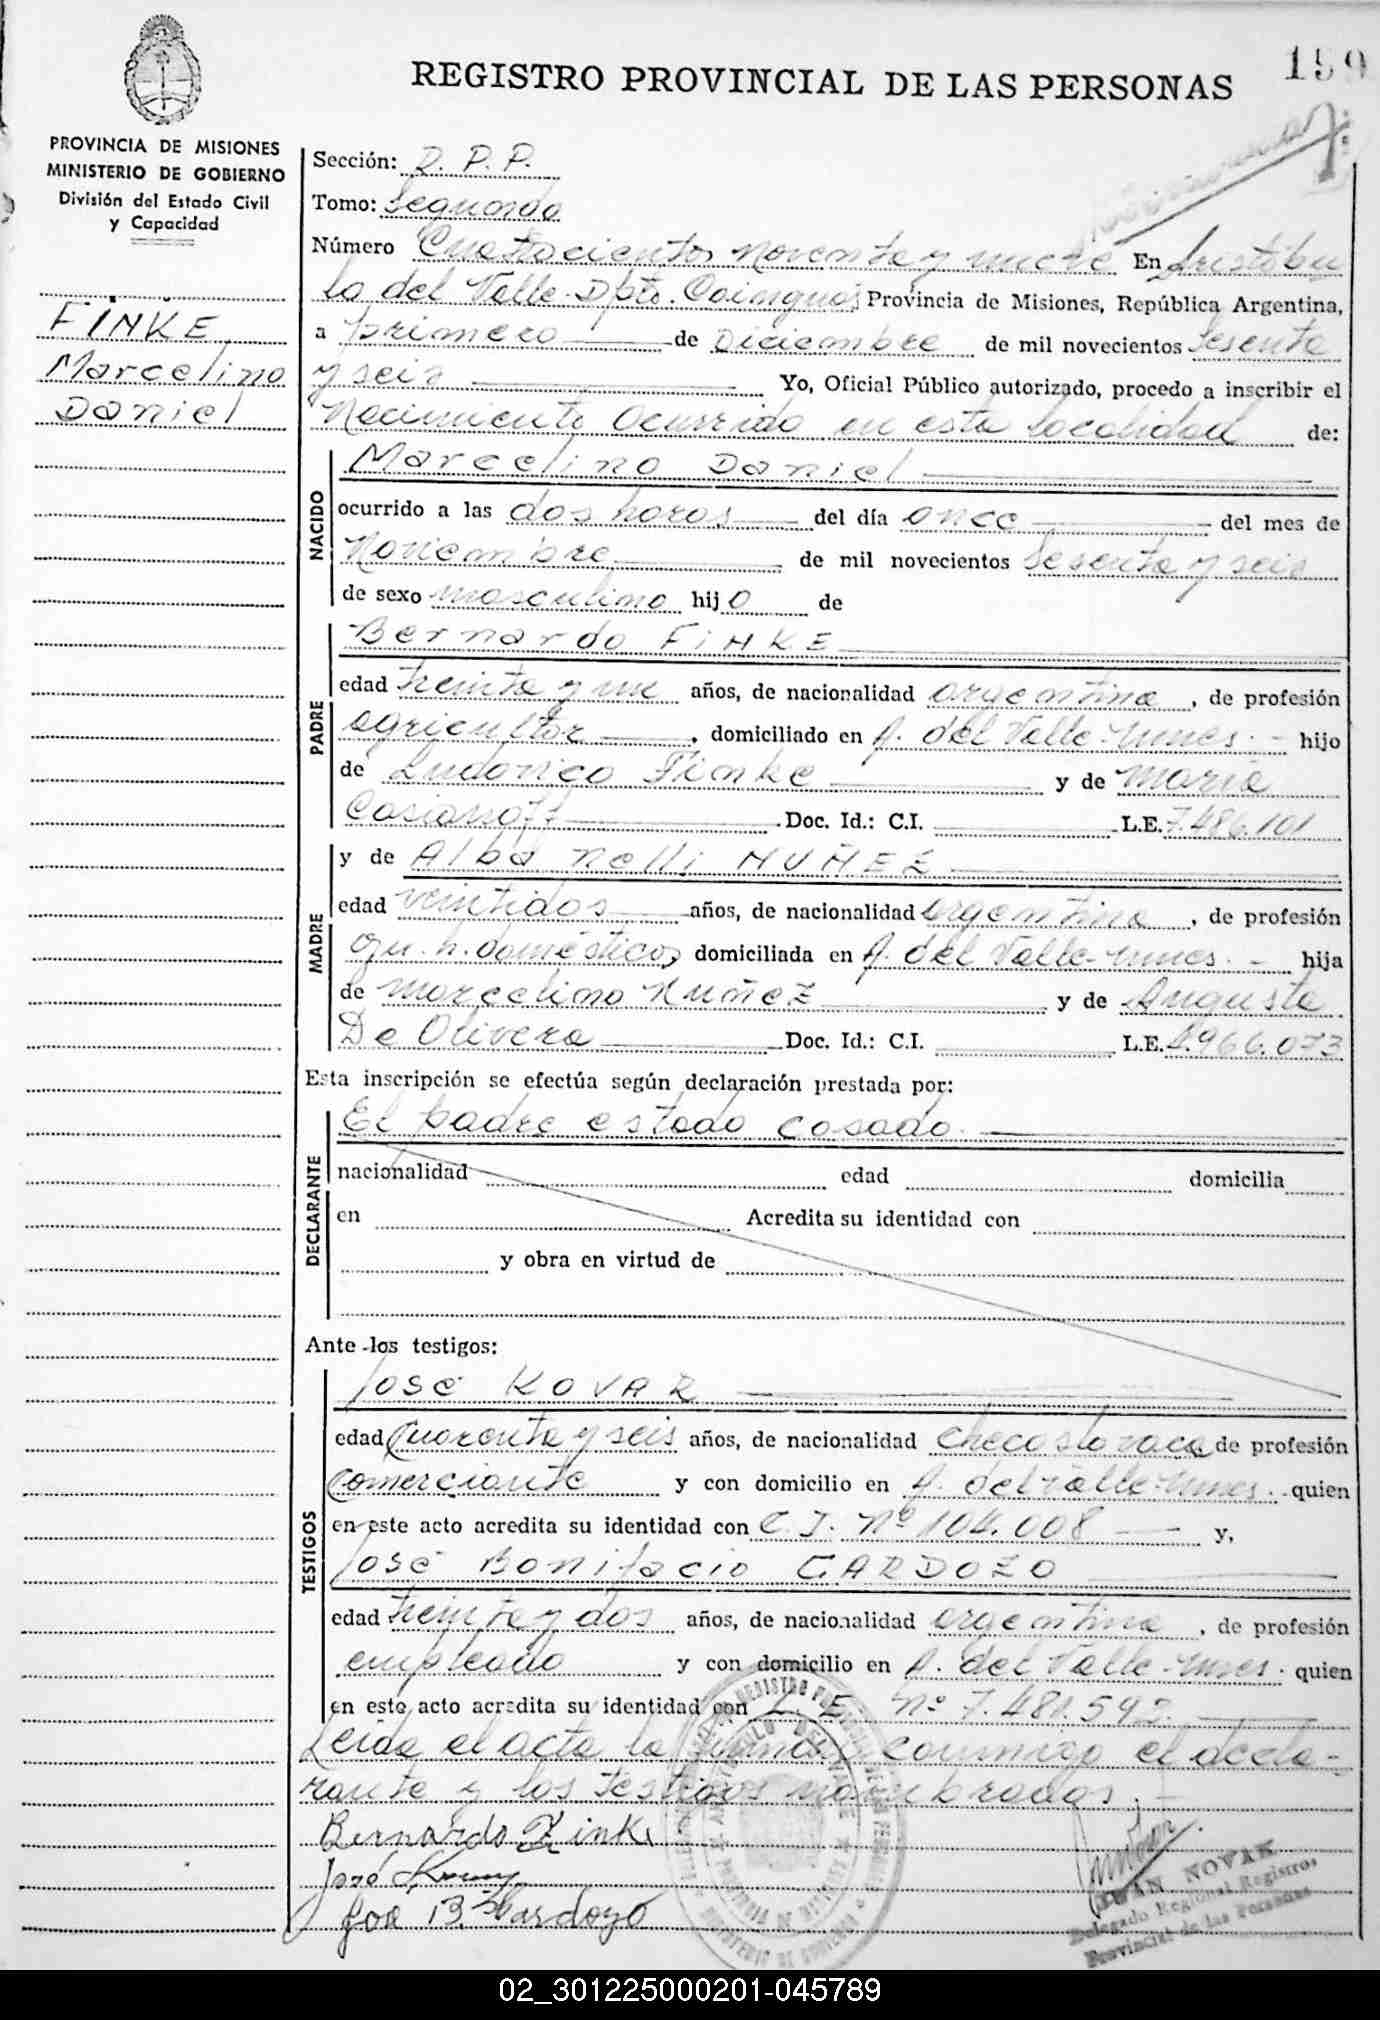 159
REGISTRO PROVINCIAL DE LAS PERSONAS
PROVINCIA DE MISIONES
MINISTERIO DE GOBIERNO
División del Estado Civil
y Capacidad
FINKE
Marcelino
Daniel
Sección: R. P. P.
Tomo: Segundo
Número Cuatrocientos noventa y nueve En Aristóbu
lo del Valle-Dpto. Cainguás Provincia de Misiones, República Argentina,
a primero de Diciembre de mil novecientos sesenta
y seis Yo, Oficial Público autorizado, procedo a inscribir el
Nacimiento ocurrido en esta localidad de:
NACIDO
Marcelino Daniel
ocurrido a las dos horas del día once del mes de
Noviembre de mil novecientos sesenta y seis
de sexo masculino hijo de
PADRE
Bernardo FINKE
edad treinta y un años, de nacionalidad argentina, de profesión
agricultor, domiciliado en A. del Valle- hijo
de Ludovico Finke y de María
Casianoff Doc. Id.: C.I. L.E. 7.486.101
MADRE
y de Alba Nelli NUÑEZ
edad veintidos años, de nacionalidad argentina, de profesión
qu. h. domésticos domiciliada en A. del Valle- hija
de Marcelino Nuñez y de Augusta
De Olivera Doc. Id.: C.I. L.E. 4.966.073
Esta inscripción se efectúa según declaración prestada por:
DECLARANTE
El padre estado casado.
nacionalidad edad domicilia
en Acredita su identidad con
y obra en virtud de
Ante los testigos:
TESTIGOS
José KOVAR
edad Cuarenta y seis años, de nacionalidad checoslovaca de profesión
comerciante y con domicilio en A. del Valle- quien
en este acto acredita su identidad con C. I. Nº 104.008 y,
José Bonifacio CARDOZO
edad treinta y dos años, de nacionalidad argentina, de profesión
empleado y con domicilio en A. del Valle- quien
en este acto acredita su identidad con L. E. Nº 7.481.592.
Leída el acta la firman conmigo el decla-
rante y los testigos nombrados.
Bernardo Finke
José
José B. Cardozo
JUAN NOVAK
Delegado Regional Registros
Provincial de las Personas
02_301225000201-045789